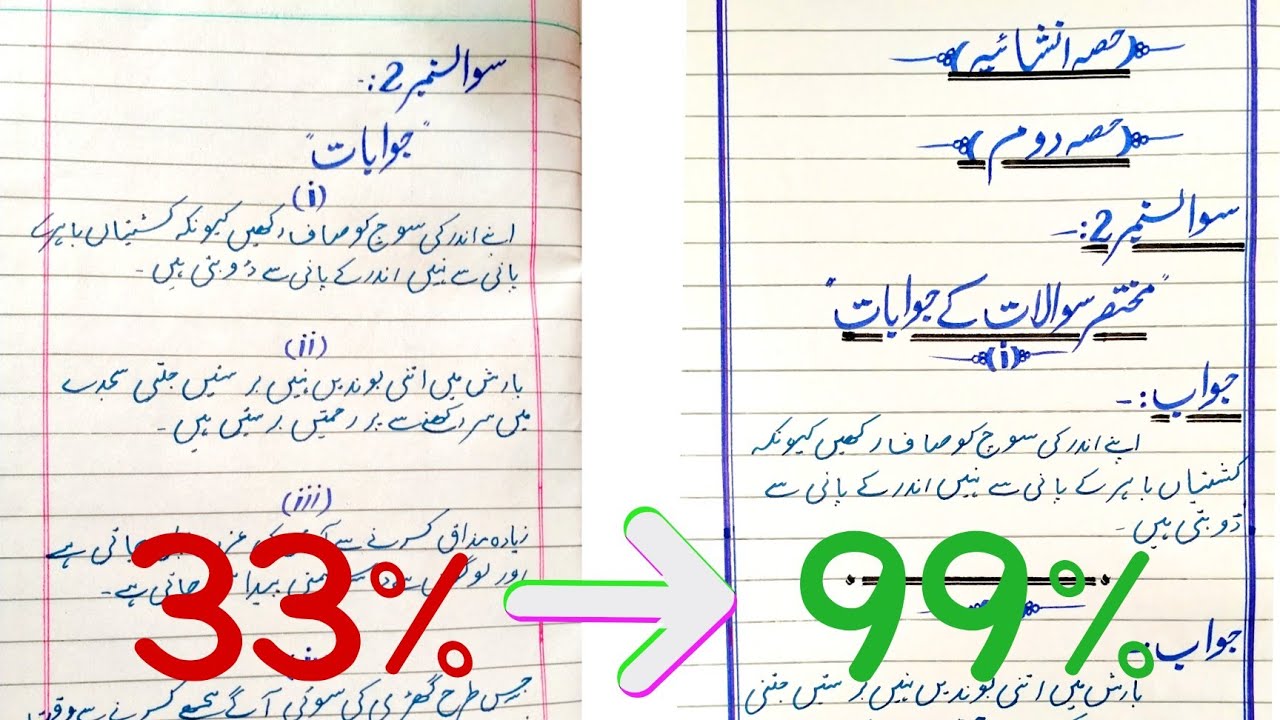 سوالنمبر 2:-
"جوابات"
(i)
اپنے اندر کی سوچ کو صاف رکھیں کیونکہ کشتیاں باہر کے
پانی سے نہیں اندر کے پانی سے ڈوبتی ہیں۔
(ii)
بارش میں اتنی بوندیں نہیں برستیں جتنی سجدے
میں سر رکھنے سے پر رحمتیں برستیں ہیں۔
(iii)
زیادہ مذاق کرنے سے جاتی ہے
اور پیدا جاتی ہے۔
جس طرح گھڑی کی سوئی آگے پیچھے کرنے سے وقت
33%
(حصہ انشائیہ)
(حصہ دوم)
سوالنمبر 2:-
"مختصر سوالات کے جوابات"
(i)
جواب:-
اپنے اندر کی سوچ کو صاف رکھیں کیونکہ
کشتیاں باہر کے پانی سے نہیں اندر کے پانی سے
ڈوبتی ہیں۔
99%
جواب:-
بارش میں اتنی بوندیں نہیں برستیں جتنی